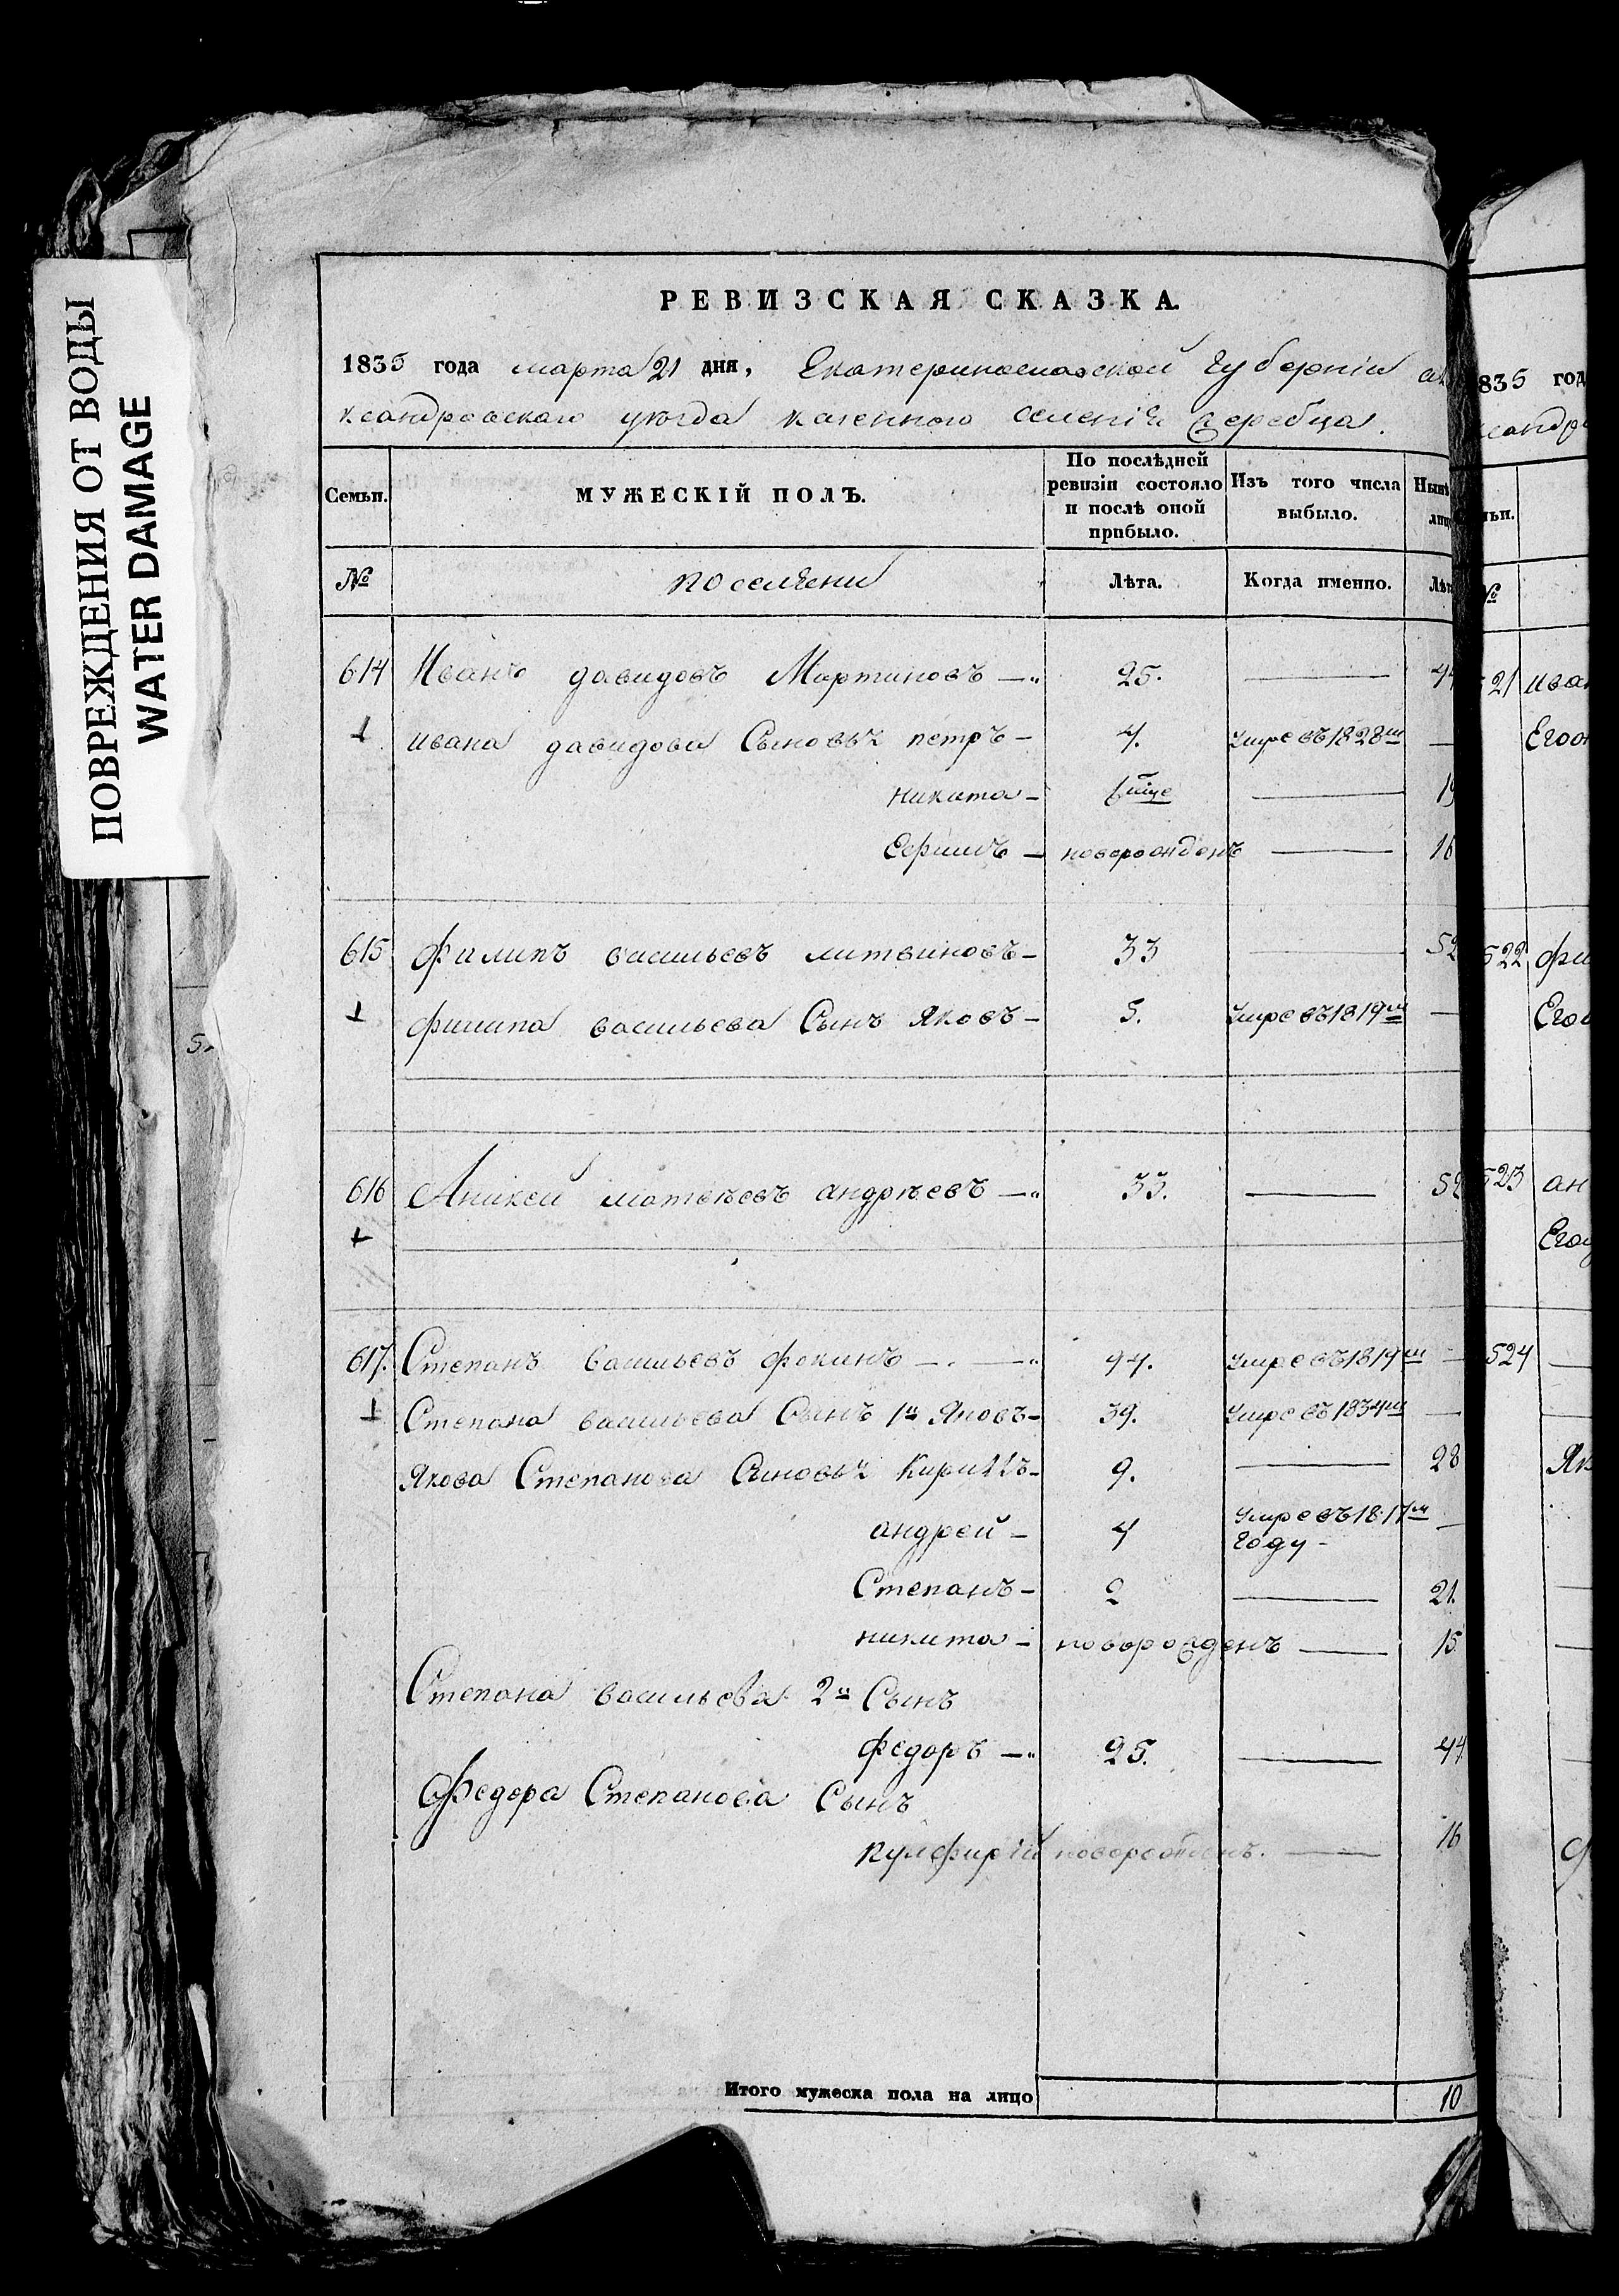 ПОВРЕЖДЕНИЯ ОТ ВОДЫ
WATER DAMAGE
РЕВИЗСКАЯ СКАЗКА.
1835 года марта 21 дня, Екатеринославской губерніи але
ксандровскаго уѣзда казенного селенія Жеребца.
Семьи. МУЖЕСКІЙ ПОЛЪ. По послѣдней ревизіи состояло и послѣ оной прибыло. Изъ того числа выбыло. Нынѣ лицо
№ поселяни Лѣта. Когда именно. Лѣта
614 Иванъ давидовъ Мартиновъ 25. 44
ивана давидова Сыновья петръ 4. Умре въ 1828м
никита 19
Еѳимъ новорожденъ 16
615 филипъ васильевъ литвиновъ 33 52
филипа васильева Сынъ Яковъ 5. Умре въ 1819м
616 Аникей матвѣевъ андрѣевъ 33. 52
617. Степанъ васильевъ фокинъ 94. Умре въ 1819м
Степана васильева Сынъ 1й Яковъ 39. Умре въ 1834м
Якова Степанова Сыновья Кирилъ 9. 28
андрей 4 Умре въ 1817м
году
Степанъ 2 21.
никита новорожденъ 15
Степана васильева 2й Сынъ
федоръ 25. 44
Федора Степанова Сынъ
новорожденъ. 16
Итого мужеска пола на лицо 10
835 год
ксандр
№
521 ива
Его
522 фи
Его
523 ан
Его
524
Як